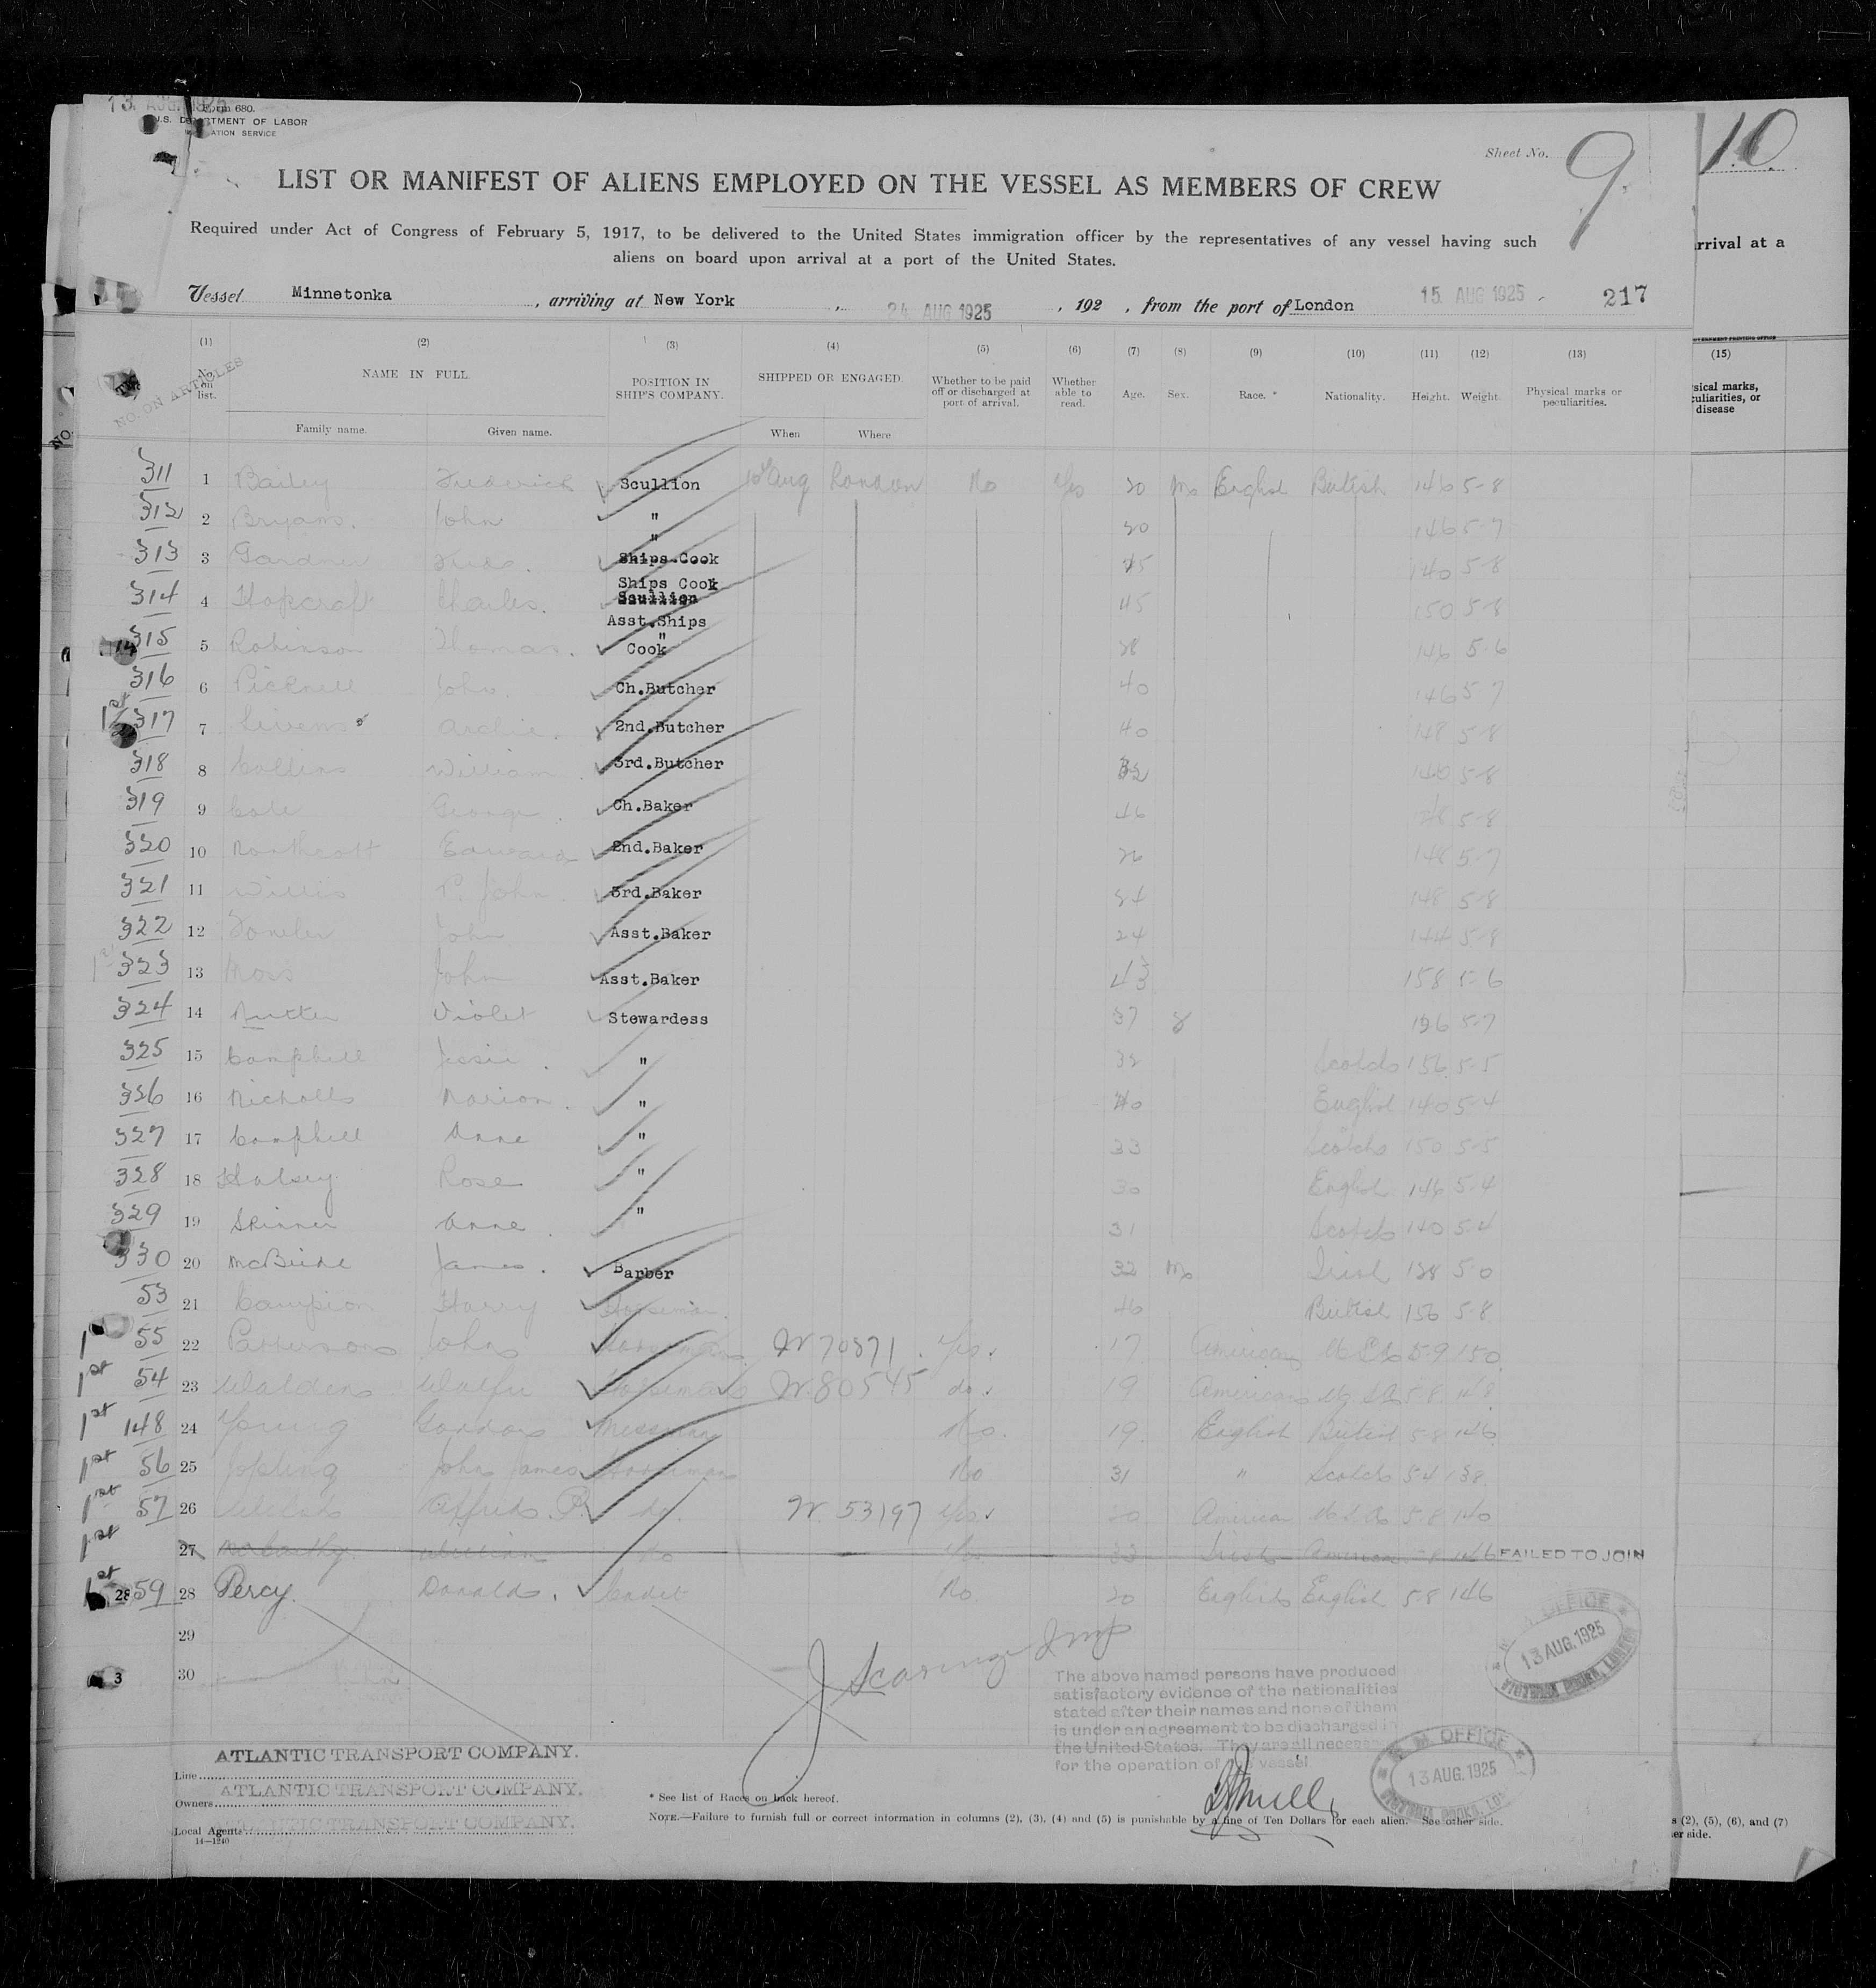 13 AUG. 1925
Form 680.
U.S. DEPARTMENT OF LABOR
IMMIGRATION SERVICE
Sheet No. 9
10
LIST OR MANIFEST OF ALIENS EMPLOYED ON THE VESSEL AS MEMBERS OF CREW
Required under Act of Congress of February 5, 1917, to be delivered to the United States immigration officer by the representatives of any vessel having such
aliens on board upon arrival at a port of the United States.
rrival at a
Vessel Minnetonka, arriving at New York, 24 AUG 1925, 192 , from the port of London 15 AUG 1925 217
(1) (2) (3) (4) (5) (6) (7) (8) (9) (10) (11) (12) (13) (15)
NO. ON ARTICLES No. on list. NAME IN FULL. Family name. Given name. POSITION IN SHIP'S COMPANY. SHIPPED OR ENGAGED. When Where Whether to be paid off or discharged at port of arrival. Whether able to read. Age. Sex. Race. * Nationality. Height. Weight. Physical marks or peculiarities.
sical marks, culiarities, or disease
311 1 Bailey Frederick Scullion Aug London No Yes 20 m English British 146 5-8
312 2 Bryans. John " 20 146 5-7
313 3 Gardner " Ships Cook 140 5-8
314 4 Hopcraft Charles. Ships Cook Scullion 45 150 5-8
315 5 Robinson Thomas. Asst.Ships " Cook 28 146 5-6
316 6 Picknell John. Ch.Butcher 40 146 5 7
1st 317 7 Archie. 2nd.Butcher 40 148 5-8
318 8 Collins William 3rd.Butcher 32 140 5-8
319 9 Cole George. Ch.Baker 46 5-8
320 10 Northcott Edward 2nd.Baker 26 148 5-7
321 11 Willis P. John 3rd.Baker 24 148 5-8
322 12 Fowler John Asst.Baker 24 144 5-8
1st 323 13 Moss John Asst.Baker 43 158 5-6
324 14 Rutter Violet Stewardess 37 5-7
325 15 Campbell Jessie. " 32 Scotch 156 5-5
326 16 Nicholls Marion. " 40 English 140 5-4
327 17 Campbell Anne " 33 Scotch 150 5-5
328 18 Halsey Rose " 30 English 146 5-4
329 19 Skinner Anne. " 31 Scotch 140 5-4
330 20 McBride James. Barber 32 m Irish 128 5 0
53 21 Campion Harry Horseman. 46 British 156 5-8
1st 55 22 Patterson John Horseman. W 70871. Yes. 17 American U.S.A 5-9 150
1st 54 23 Walden Horseman W.80545 do. 19 American U.S.A 5 8 148
1st 148 24 Young Gordon Messman No. 19 English British 5-8 146
1st 56 25 Jopling John James Horseman No 31 " Scotch 5 4 138
1st 57 26 Alfred. P. do. W. 53197 Yes. 20 American U.S.A 5-8 140
1st 27 McCarthy William do Yes 146 FAILED TO JOIN
1st 28 59 28 Percy. Donald. Cadet No 20 English English 5-8 146
29
3 30
13 AUG. 1925
The above named persons have produced
satisfactory evidence of the nationalities
stated after their names and none of them
is under an agreement to be discharged in
the United States. They are all necessary
for the operation of the vessel
M. M. OFFICE
13 AUG. 1925
Line ATLANTIC TRANSPORT COMPANY.
Owners ATLANTIC TRANSPORT COMPANY.
Local Agents ATLANTIC TRANSPORT COMPANY.
14—1240
* See list of Races on back hereof.
NOTE.—Failure to furnish full or correct information in columns (2), (3), (4) and (5) is punishable by a fine of Ten Dollars for each alien. See other side.
s (2), (5), (6), and (7)
er side.